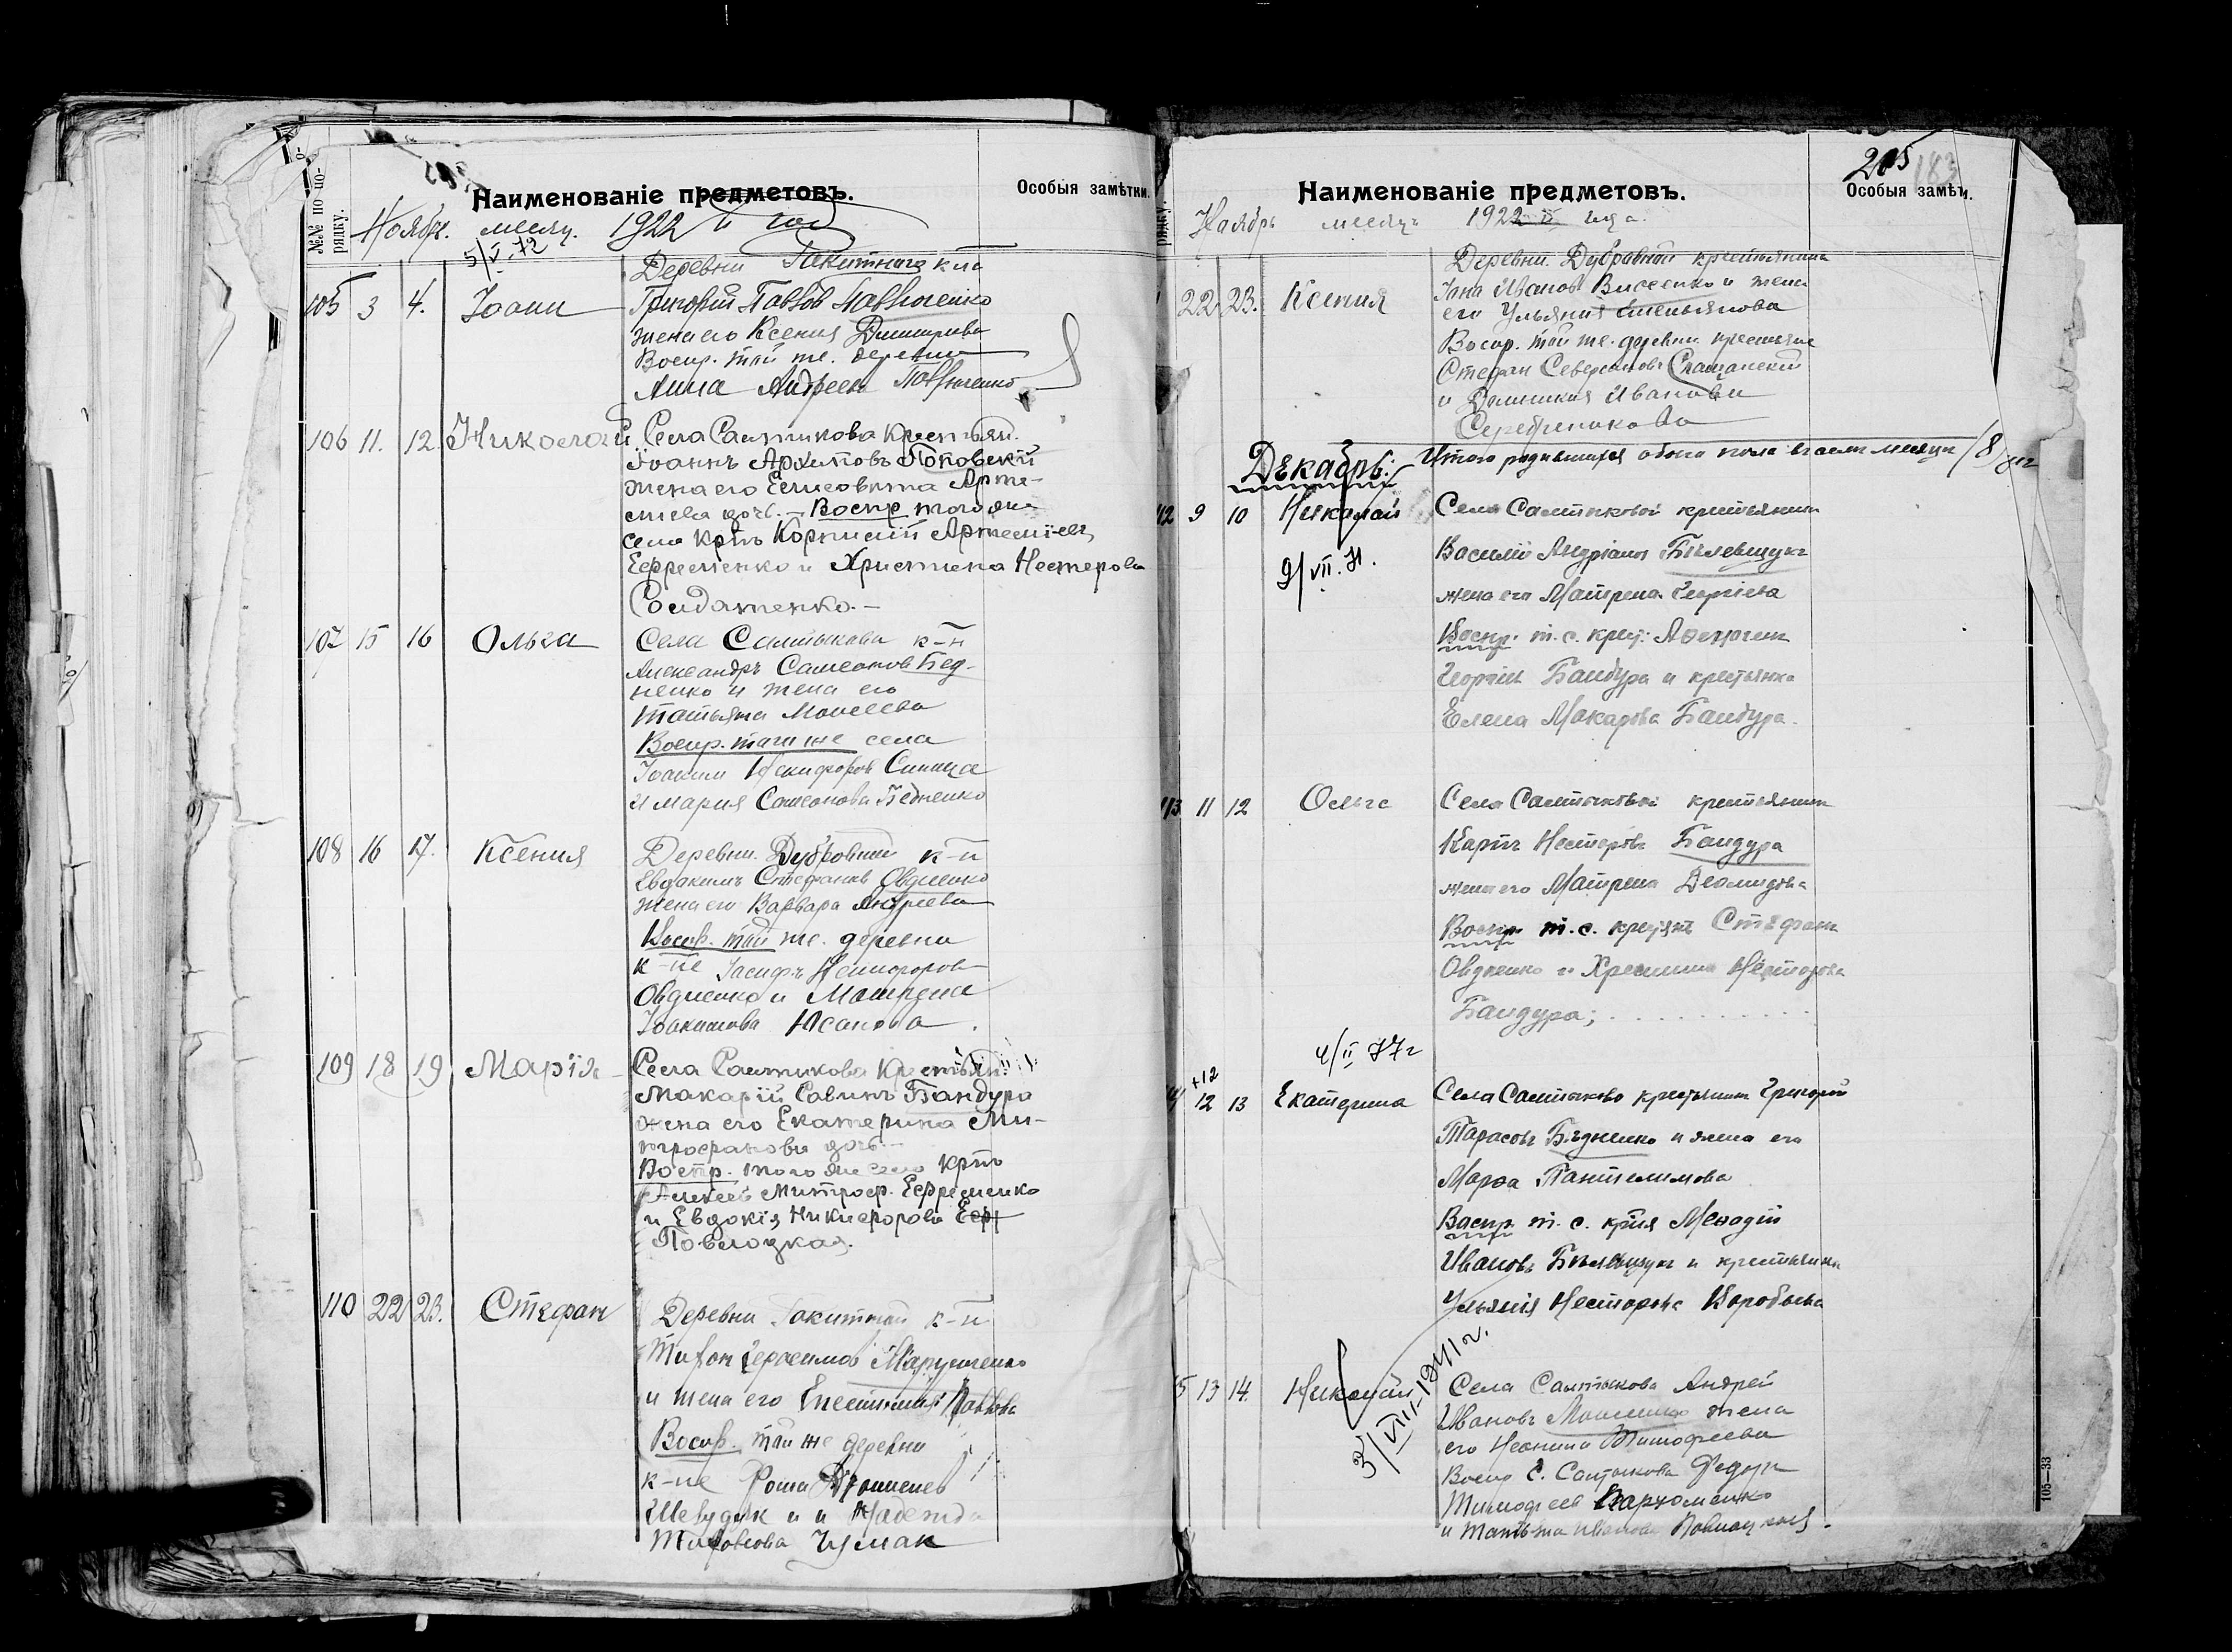 №№ по порядку.
Наименованіе предметовъ.
Особыя замѣтки.
Ноябрь. месяц. 1922 й год
5/V.72
105 3 4. Іоанн
Деревни Ракитнаго к-на
Григорій Павлов Павличенко
жена его Ксения Димитриева
Воспр. той же. деревни
Анна Андреева Павличенко
106 11. 12. Николай
Села Салтикова Крестьян.
Іоаннъ Архиповъ Поповскій
жена его Елисовета Арте-
миева дочь. - Воспр того же
села Крть Корнилій Артеміевъ
Ефременко и Христина Нестерова
Солдатенко. -
107 15 16 Ольга
Села Салтыкова к-н
Александръ Самсонов Бед-
ненко и жена его
Татьяна Моисеева
Воспр. того же села
Іоаким Никифоров Синица
и Мария Самсонова Бедненко
108 16 17. Ксения
Деревни Дубровки к-н
Евдокимъ Стефанов Овдиенко
жена его Варвара Андреева
Воспр. той же. деревни
к-не Іосифъ Никифоров
Овдиенко и Матрена
Іоакимова
109 18 19 Марія
Села Салтикова Крестьян.
Макарій Савинъ Бандура
жена его Екатерина Ми-
трофанова дочь. -
Воспр. того же села Крть
Алексей Митроф. Ефременко
и Евдокія Никифорова Еф
Поволоцкая.
110 22 23. Стефан
Деревни Ракитной к-н
Тихон Герасимов Марущенко
и жена его Павлова
Воспр. той же деревни
к-не
и Надежда
Чумак
Наименованіе предметовъ.
205
183
Особыя замѣт.
Ноябрь месяць 1922 й года.
22 23. Ксения
Деревни Дубровной крестьянина
Іоана Иванов и жена
его Ульяния Емельянова
Воспр. той же. деревни крестьяне
Стефан
и Домникия Иванова
Серебрякова
Итого родившихся обоего пола въ сем месяце 18
Декабрь:
112 9 10 Николай
9/VII.71.
Села Салтыковой крестьянин
Василій Андріанов Билевщукъ
жена его Матрена Георгіева
Воспр. т. с. крест.
Георгіев Бандура и крестьянка
Елена Макарова Бандура.
113 11 12 Ольга
Села Салтыковой крестьянин
Карпъ Нестеровъ Бандура
жена его Матрена Деомидова
Воспр т. с. Стефанъ
Овдиенко и Нестерова
Бандура; . . . . . . . . . .
4/II 77г
+12
12 13 Екатерина
Села Салтыково крестьянин Григорий
Тарасовъ Бѣдненко и жена его
Марѳа Пантелимова
Воспр т. с. Меѳодій
Ивановъ Билевщукъ и крестьянка
Ульянія Нестерова Воробьева
3/VIII-1941г.
5 13 14. Николай
Села Салтыкова Андрей
Ивановъ жена
его Неонила Тимофеева
Воспр с. Салтыкова Федоръ
Тимофеев Пархоменко
и Татьяна Иванова
105—33